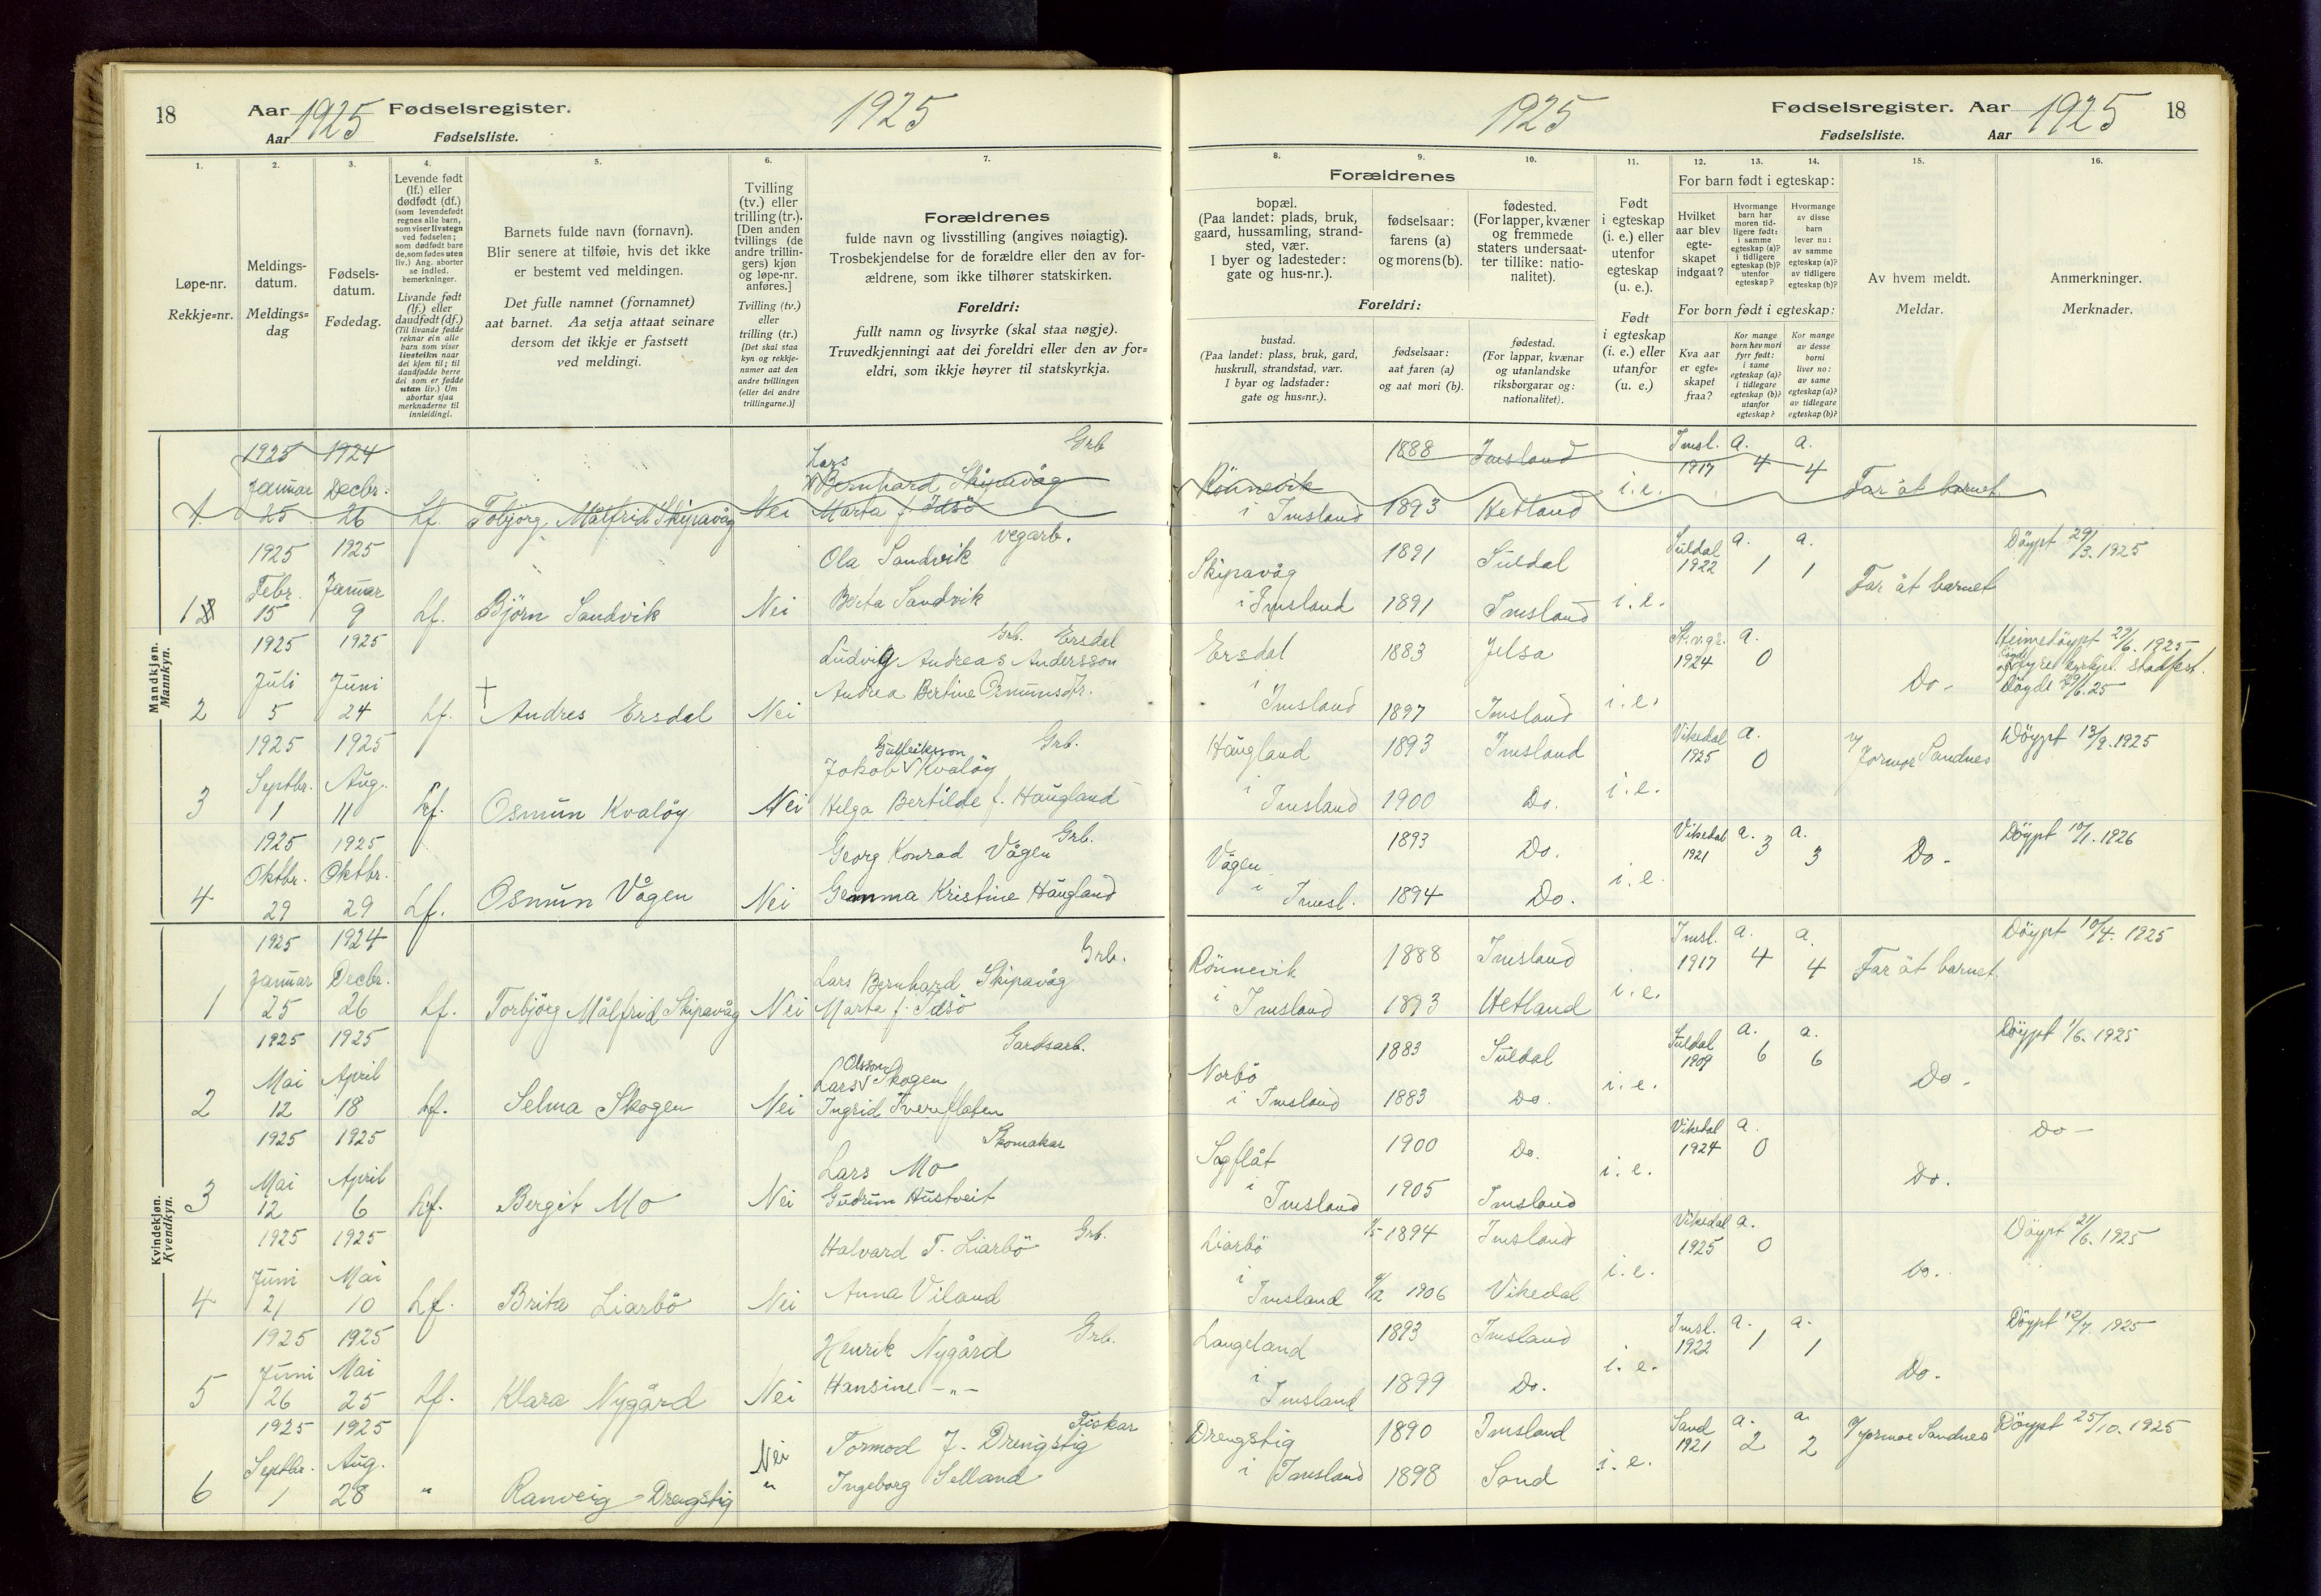 18 Aar 1925 Fødselsregister. 1925
Aar Fødselsliste.
1. 2. 3. 4. 5. 6. 7.
Løpe-nr.
Rekkje=nr.
Meldings-
datum.
Meldings=
dag
Fødsels-
datum.
Fødedag.
Levende født
(lf.) eller
dødfødt (df.)
(som levendefødt
regnes alle barn,
som viser livstegn
ved fødselen;
som dødfødt bare
de, som fødes uten
liv.) Ang. aborter
se indled.
bemerkninger.
Livande født
(lf.) eller
daudfødt (df.)
(Til livande fødde
reknar ein alle
barn som viser
livsteikn naar
dei kjem til; til
daudfødde berre
dei som er fødde
utan liv.) Um
abortar sjaa
merknaderne til
innleidingi.
Barnets fulde navn (fornavn).
Blir senere at tilføie, hvis det ikke
er bestemt ved meldingen.
Det fulle namnet (fornamnet)
aat barnet. Aa setja attaat seinare
dersom det ikkje er fastsett
ved meldingi.
Tvilling
(tv.) eller
trilling (tr.).
[Den anden
tvillings (de
andre trillin-
gers) kjøn
og løpe-nr.
anføres.]
Tvilling (tv.)
eller
trilling (tr.)
[Det skal staa
kyn og rekkje-
numer aat den
andre tvillingen
(eller dei andre
trillingarne.)]
Forældrenes
fulde navn og livsstilling (angives nøiagtig).
Trosbekjendelse for de forældre eller den av for-
ældrene, som ikke tilhører statskirken.
Foreldri:
fullt namn og livsyrke (skal staa nøgje).
Truvedkjenningi aat dei foreldri eller den av for=
eldri, som ikkje høyrer til statskyrkja.
1925 Fødselsregister. Aar 1925 18
Fødselsliste. Aar
8. 9. 10. 11. 12. 13. 14. 15. 16.
Forældrenes
bopæl.
(Paa landet: plads, bruk,
gaard, hussamling, strand-
sted, vær.
I byer og ladesteder:
gate og hus-nr.).
fødselsaar:
farens (a)
og morens (b).
fødested.
(For lapper, kvæner
og fremmede
staters undersaat-
ter tillike: natio-
nalitet).
Foreldri:
bustad.
(Paa landet: plass, bruk, gard,
huskrull, strandstad, vær.
I byar og ladstader:
gate og hus=nr.).
fødselsaar:
aat faren (a)
og aat mori (b).
fødestad.
(For lappar, kvænar
og utanlandske
riksborgarar og:
nationalitet).
Født
i egteskap
(i. e.) eller
utenfor
egteskap
(u. e.).
Født
i egteskap
(i. e.) eller
utanfor
(u. e.)
For barn født i egteskap:
Hvilket
aar blev
egte-
skapet
indgaat?
Hvormange
barn har
moren tid-
ligere født:
i samme
egteskap (a)?
i tidligere
egteskap (b)?
utenfor
egteskap?
Hvormange
av disse
barn
lever nu:
av samme
egteskap (a)?
av tidligere
egteskap (b)?
For born født i egteskap:
Kva aar
er egte=
skapet
fraa?
Kor mange
born hev mori
fyrr født:
i same
egteskap (a)?
i tidlegare
egteskap (b)?
utanfor
egteskap?
Kor mange
av desse
borni
liver no:
av same
egteskap (a)?
av tidlegare
egteskap (b)?
Av hvem meldt.
Meldar.
Anmerkninger.
Merknader.
Mandkjøn.
Mannkyn.
1925 1924 Lars Grb 1888 Imsland Imsl. a. a.
Januar Decbr. Bernhard Skipavåg Rönnevik 1917 4 4
1. 25 26 Lf. Tobjorg Målfrid Skipavåg Nei Marta f. Idsö i Imsland 1893 Hetland i.e. Far åt barnet
1925 1925 vegarb.
Ola Sandvik Skipavåg 1891 Suldal Suldal 1922 a. 1 a. 1 Döypt 29/3. 1925
Febr. Januar
1 15 9 Lf. Björn Sandvik Nei Berta Sandvik i Imsland 1891 Imsland i.e. Far åt barnet
1925 1925 Grb. Ersdal
Ludvig Andreas Andersson Ersdal 1883 Jelsa 1924 a. 0 Heimedöypt 29/6. 1925
stadfest.
Juli Juni Andrea Bertine Osmunsdtr. Do. Döydt 29/6. 25
2 5 24 Lf. † Andres Ersdal Nei i Imsland 1897 Imsland i.e.
1925 1925 Gudleiksson Grb.
Jakob V Kvalöy Haugland 1893 Imsland Vikedal 1925 a. 0 Jormor Sandnes Döypt 13/9. 1925
Septbr. Aug.
3 1 11 Lf. Osmun Kvalöy Nei Helga Bertilde f. Haugland i Imsland 1900 Do. i.e.
1925 1925 Grb.
Georg Konrad Vågen Vågen 1893 Do. Vikedal 1921 a. 3 a. 3 Do. Döypt 10/1. 1926
Oktbr. Oktbr.
4 29 29 Lf. Osmun Vågen Nei Gemma Kristine Haugland i Imsl. 1894 Do. i.e.
Kvindekjøn.
Kvendkyn.
1925 1924 Grb.
Januar Decbr. Lars Bernhard Skipavåg Rönnevik 1888 Imsland Imsl. 1917 a. 4 a. 4 Far åt barnet. Döypt 10/4. 1925
1 25 26 Lf. Torbjörg Målfrid Skipavåg Nei Marta f. Idsö i Imsland 1893 Hetland i.e.
1925 1925 Gardsarb.
Olsson
Mai April Lars V Skogen Norbö 1883 Suldal Suldal 1909 a. 6 a. 6 Do. Döypt 1/6. 1925
2 12 18 Lf. Selma Skogen Nei Ingrid Kvereflaten i Imsland 1883 Do. i.e.
1925 1925 Skomakar
Mai April Lars Mo Sagflåt 1900 Do. Vikedal 1924 a. 0 Do. Do —
3 12 6 Lf. Bergit Mo Nei Gudrun Hustveit i Imsland 1905 Imsland i.e.
1925 1925 Grb.
Halvard T. Liarbö Liarbö 1/5 1894 Imsland Vikedal 1925 a. 0 Do. Döypt 21/6. 1925
Juni Mai
4 21 10 Lf. Brita Liarbö Nei Anna Viland i Imsland 9/2 1906 Vikedal i.e.
1925 1925 Grb.
Henrik Nygård Langeland 1893 Imsland Imsl. 1922 a. 1 a. 1 Do. Döypt 12/7. 1925
Juni Mai
5 26 25 Lf. Klara Nygård Nei Hansine —„— i Imsland 1899 Do. i.e.
1925 1925 Fiskar
Tormod J. Drengstig Drengstig 1890 Imsland Sand 1921 a. 2 a. 2 Jormor Sandnes Döypt 25/10. 1925
Septbr. Aug. Nei
6 1 28 „ Ranveig Drengstig „ Ingeborg Selland i Imsland 1898 Sand i.e.